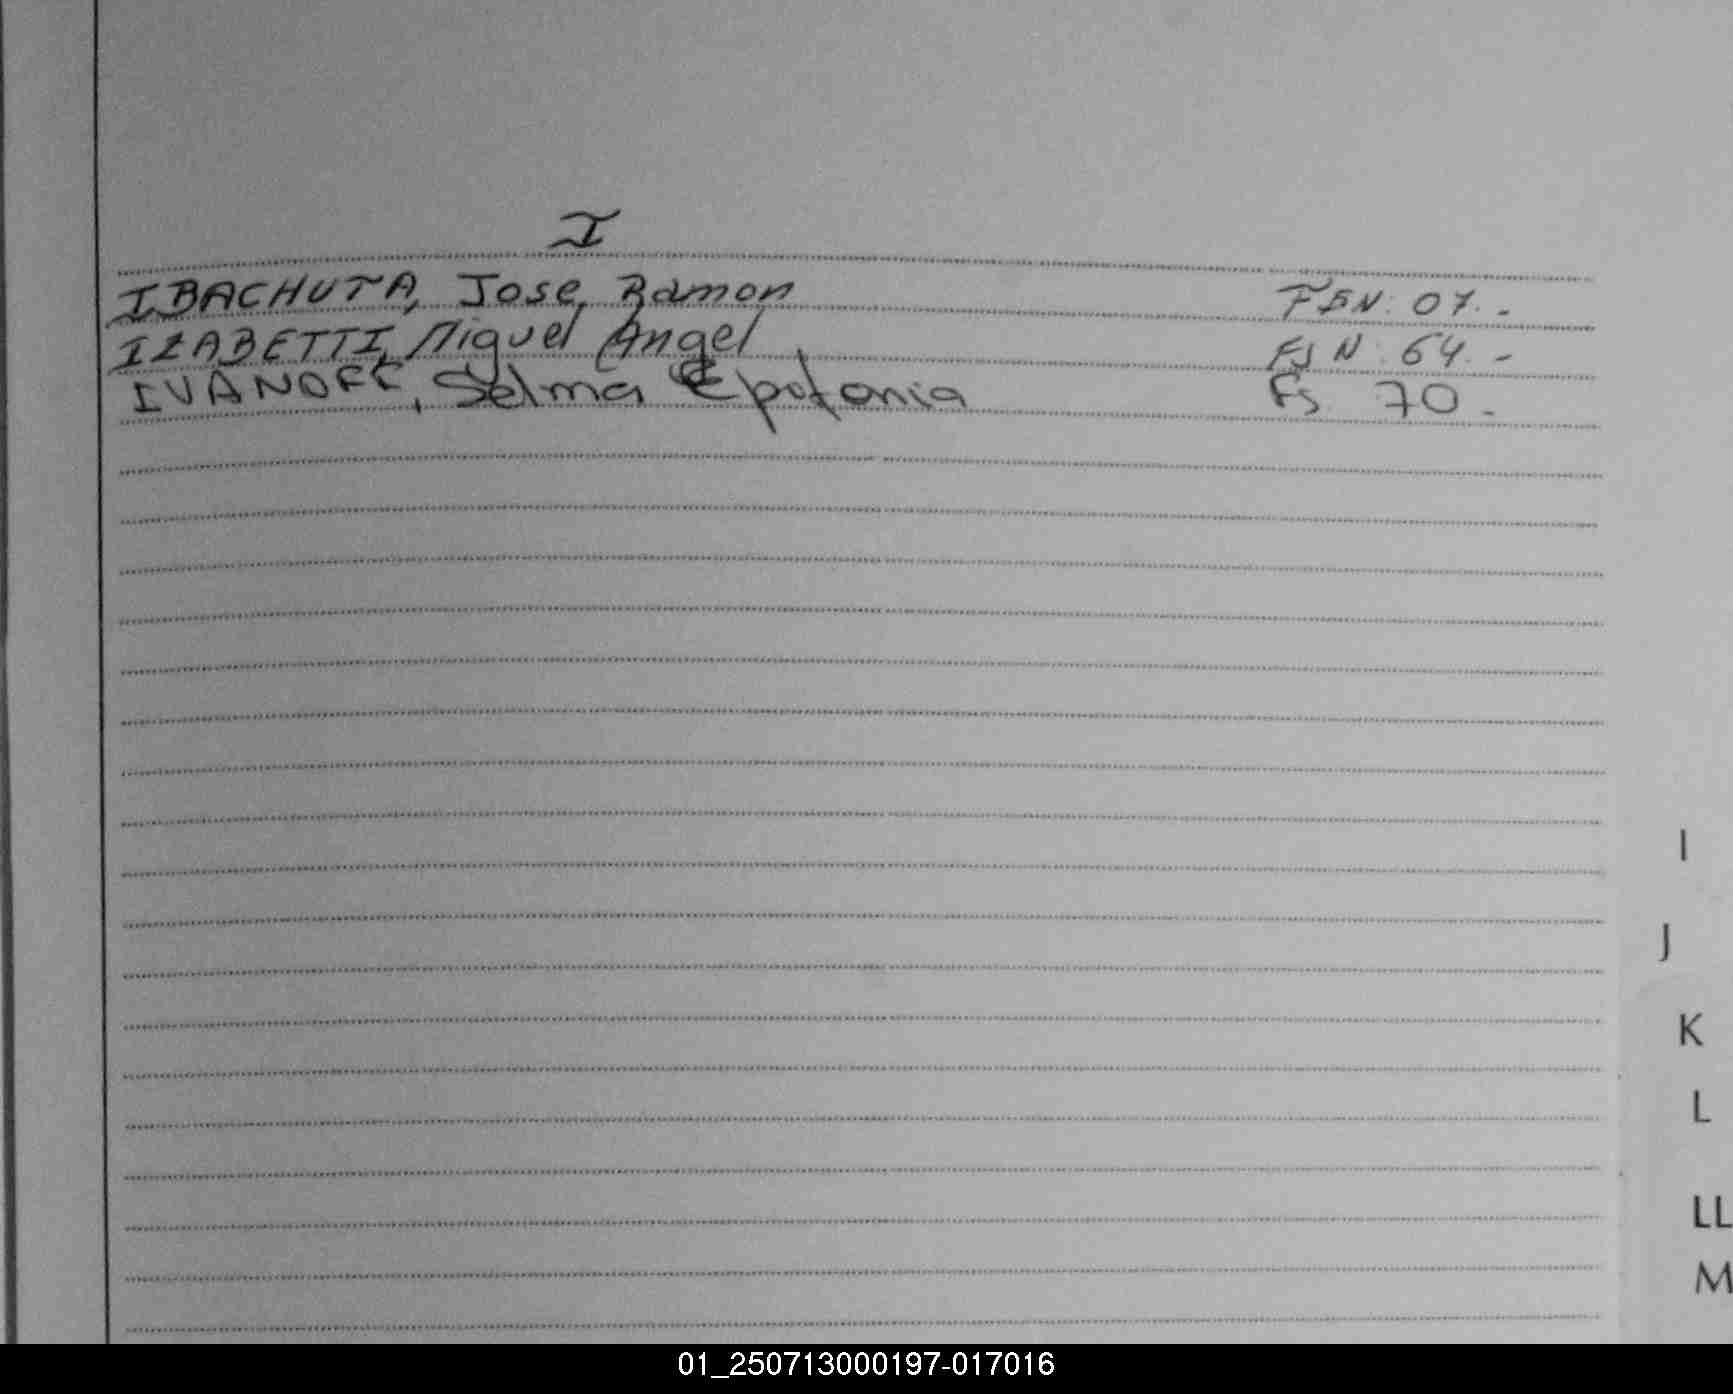 I
IBACHUTA, Jose Ramon FSN: 07.-
IZABETTI, Miguel Angel FS N: 64.-
IVANOFF, Selma Epofania Fs 70.-
I
J
K
L
LL
M
01_250713000197-017016